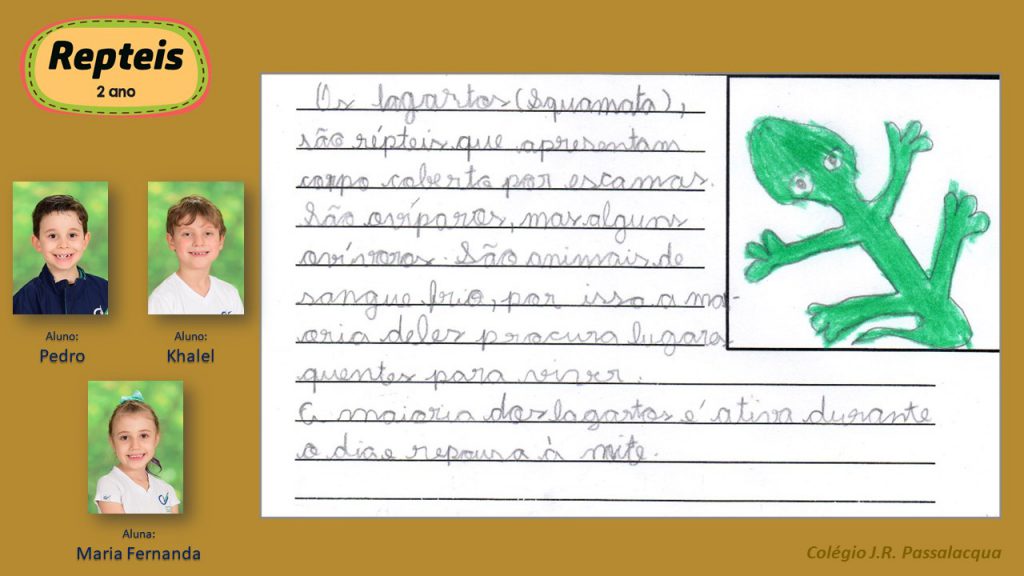 Repteis
2 ano
Os lagartos (Squamata),
são répteis que apresentam
corpo coberto por escamas.
São ovíparos, mas alguns
ovívoros. São animais de
sangue frio, por isso a mai-
oria deles procura lugares
quentes para viver.
A maioria dos lagartos é ativa durante
o dia e repousa à noite.
Aluno:
Pedro
Aluno:
Khalel
Aluna:
Maria Fernanda
Colégio J.R. Passalacqua